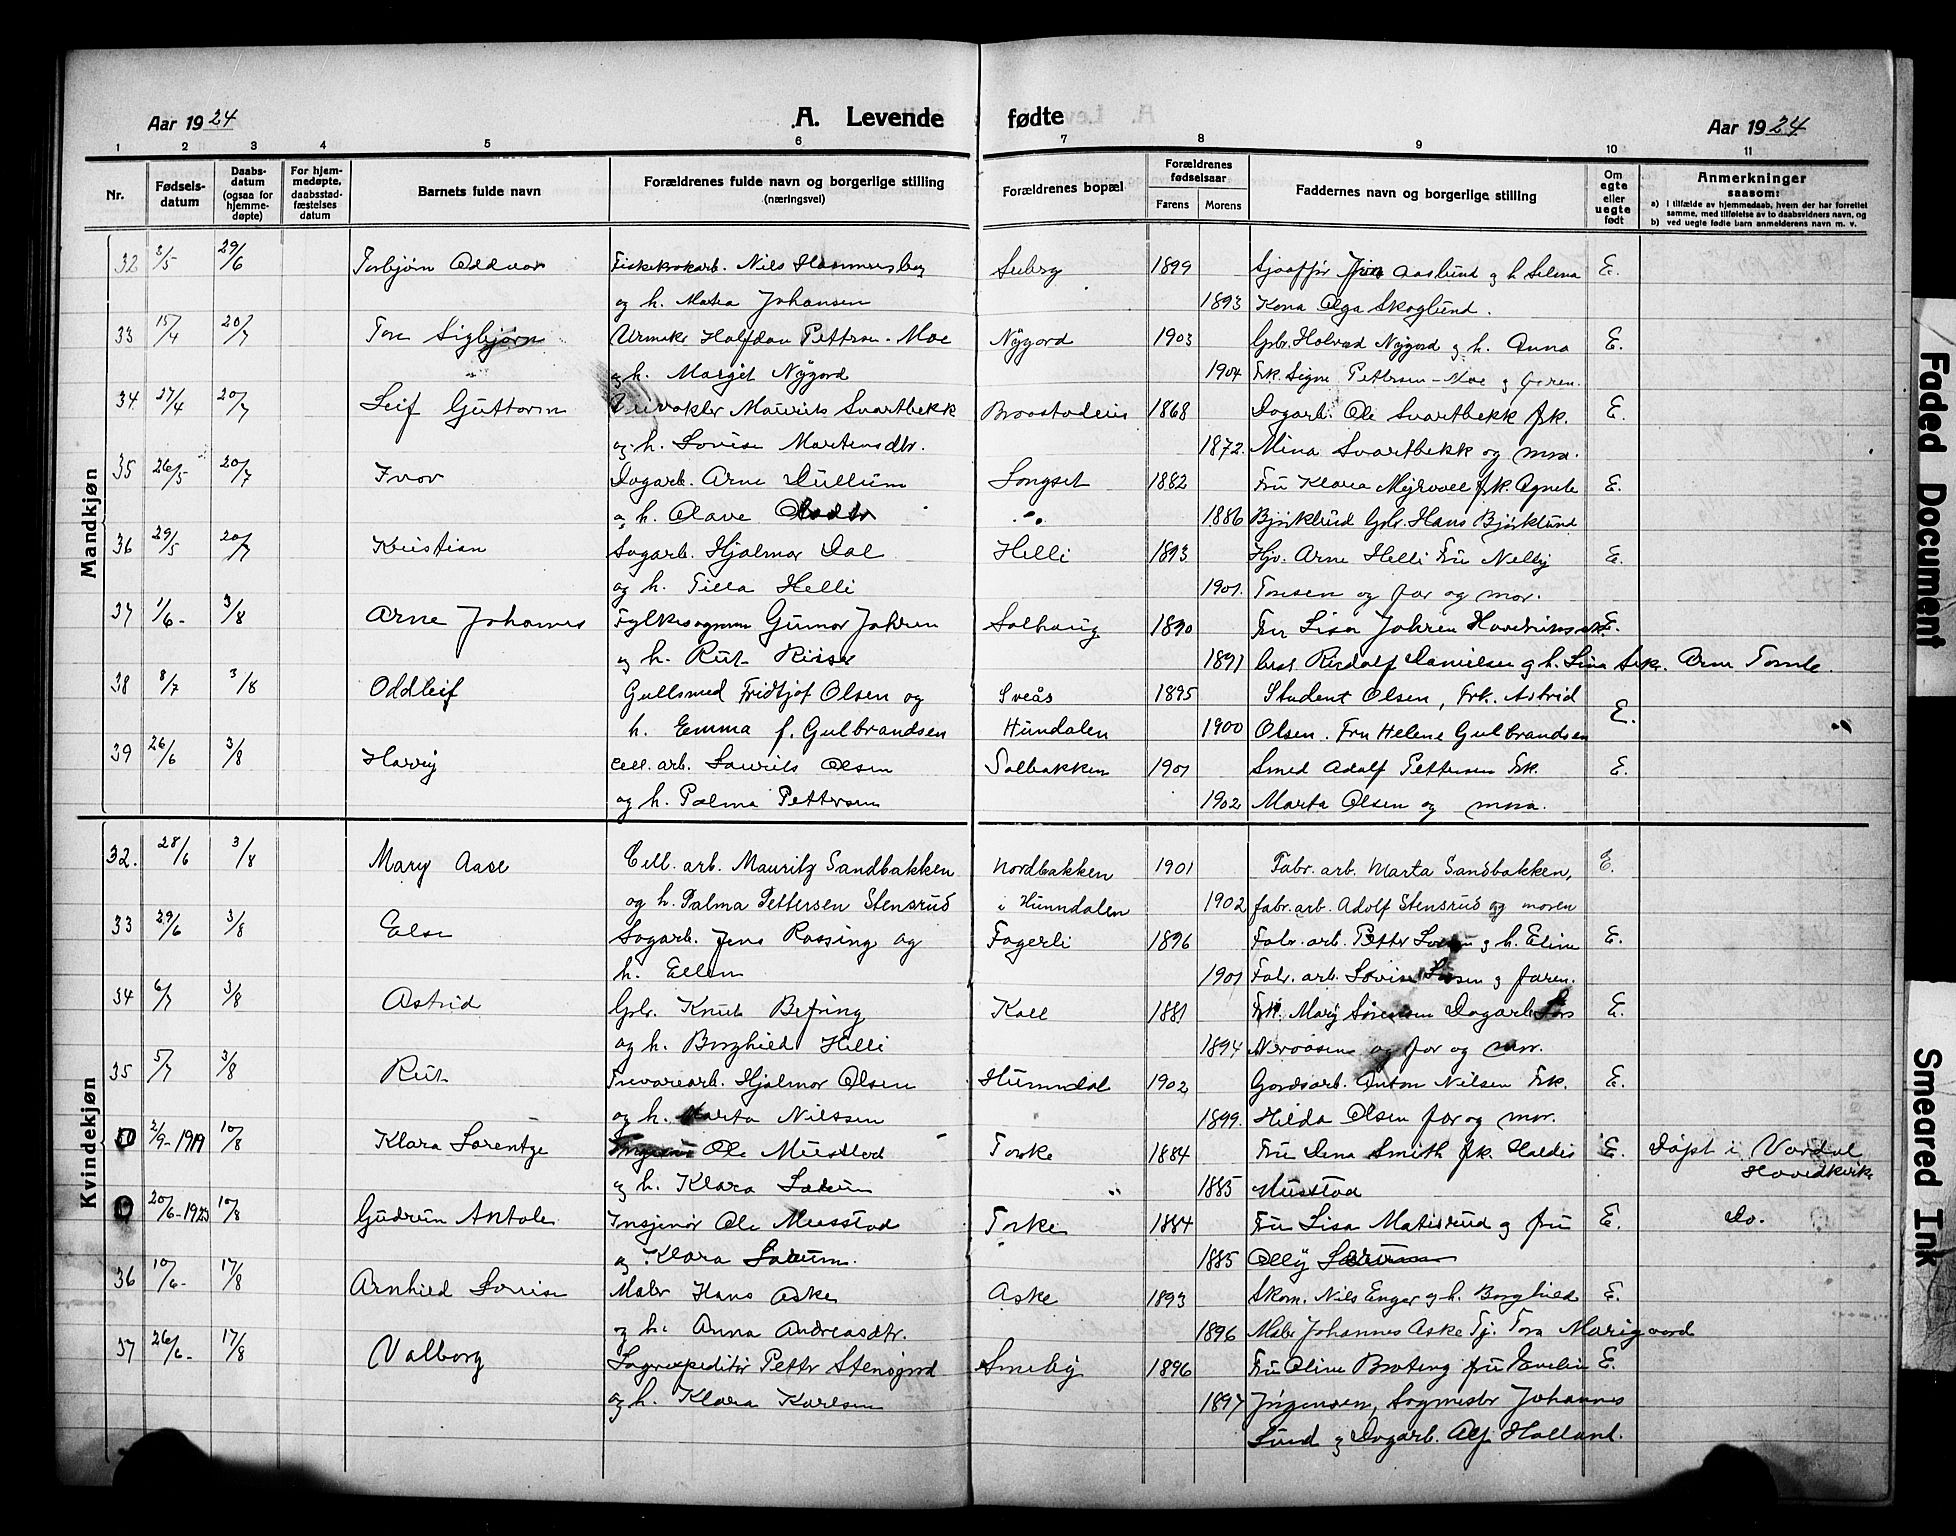 A. Levende fødte
Aar 1924
Aar 1924
1 2 3 4 5 6 7 8 9 10 11
Nr.
Fødsels-datum
Daabs-datum (ogsaa for hjemme-døpte)
For hjem-medøpte, daabsstad-fæstelses datum
Barnets fulde navn
Forældrenes fulde navn og borgerlige stilling (næringsvei)
Forældrenes bopæl
Forældrenes fødselsaar
Farens Morens
Faddernes navn og borgerlige stilling
Om egte eller uegte født
Anmerkninger saasom:
a) i tilfælde av hjemmedaab, hvem der har forrettet samme, med tilføielse av to daabsvidners navn, og
b) ved uegte fødte barn anmelderens navn m. v.
Mandkjøn
32 3/5 29/6 Torbjørn Oddvar Nils Seeberg 1899 Aaslund g h. Selma E.
og h. Johansen 1893 Kona Olga Skoglund.
33 15/4 20/7 Tore Sigbjørn Urmaker Halfdan Petters.-Moe Nygord 1903 Gbr. Halvard Nygord g h. Anna E.
og h. Margit Nygord 1904 Frk. Signe Pettersen-Moe g faren.
34 27/4 20/7 Leif Guttorm Maurits Svartbekk 1868 Dagarb. Ole Svartbekk frk. E.
og h. Lovise Martensdtr. 1872. Mina Svartbekk og mora.
35 26/5 20/7 Ivar Dagarb. Arne Dullum Longset 1882 Fru Klara frk. Agnete E.
og h. Olave 1886 Bjørklund Gbr. Hans Bjørklund
36 29/5 20/7 Kristian Sagarb. Hjalmar Dal Helli 1893 Arne Helli Fru Nelly E.
og h. Tilla Helli 1901. Tonsen og far og mor.
37 1/6- 3/8 Arne Johannes Gunnar Johren Solhaug 1890 Fru Lisa Johren E.
og h. Rut 1891 Danielsen g h. Lina Arne
38 8/7 3/8 Oddleif Gullsmed Fridtjof Olsen og Sveås 1895 Student Olsen, Frk. Astrid E.
h. Emma f. Gulbrandsen Hundalen 1900 Olsen. Fru Helene Gulbrandsen
39 26/6 3/8 Harvig Cell. arb. Laurits Olsen Solbakken 1901 Smed Adolf Pettersen Frk. E.
og h. Palma Pettersen 1902 Marta Olsen og mora.
Kvindekjøn
32. 28/6 3/8 Mary Aase Cell. arb. Mauritz Sandbakken Nordbakken 1901 Fabr. arb. Marta Sandbakken, E.
og h. Palma Pettersen Stensrud i Hunndalen 1902 fabr. arb. Adolf Stensrud og moren
33 29/6 3/8 Else Sagarb. Jens Rossing og Fagerli 1896 Fabr. arb. Petter g h. Eline E.
h. Ellen 1901 Fabr. arb. Lovise g faren.
34 6/7 3/8 Astrid Gbr. Knut Befring Kall 1881 Frk. Mary Sørensen Dagarb. Lars E.
og h. Borghild Helli 1894 og far og mor.
35 5/7 3/8 Rut Trevarearb. Hjalmar Olsen Hunndal 1902 Gardsarb. Anton Nilsen Frk. E.
og h. Marta Nilssen 1899. Hilda Olsen far og mor.
2/9-1919 10/8 Klara Lorentze Ole Mustad Torke 1884 Fru Dena Smith frk. Haldis E. Døpt i Vardal Hovedkirke
g h. Klara 1885 Mustad
20/6-1923 10/8 Gudrun Ole Musstad Torke 1884 Fru Lisa g fru E. Do.
og Klara 1885 Olly
36 10/6- 17/8 Arnhild Lovise Maler Hans Aske Aske 1893 Skom. Nils Enger g h. Borghild E.
g h. Anna Andreasdtr. 1896 Maler Johannes Aske Tj. Tora
37 26/6- 17/8 Valborg Lagerexpeditør Petter Stensgord Smeby 1896 Fru Oline Broteng fru Evelin E.
og h. Klara Karlsen 1897 Jørgensen, Sagmester Johannes
Lund g Dagarb. Alf Halland.
Faded Document
Smeared Ink